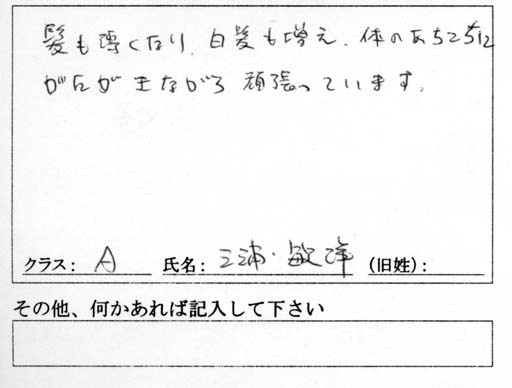 髪も薄くなり、白髪も増え、体のあちこちに
がたが来ながら 頑張っています。
クラス： A 氏名： 三浦・敏洋 (旧姓)：
その他、何かあれば記入して下さい